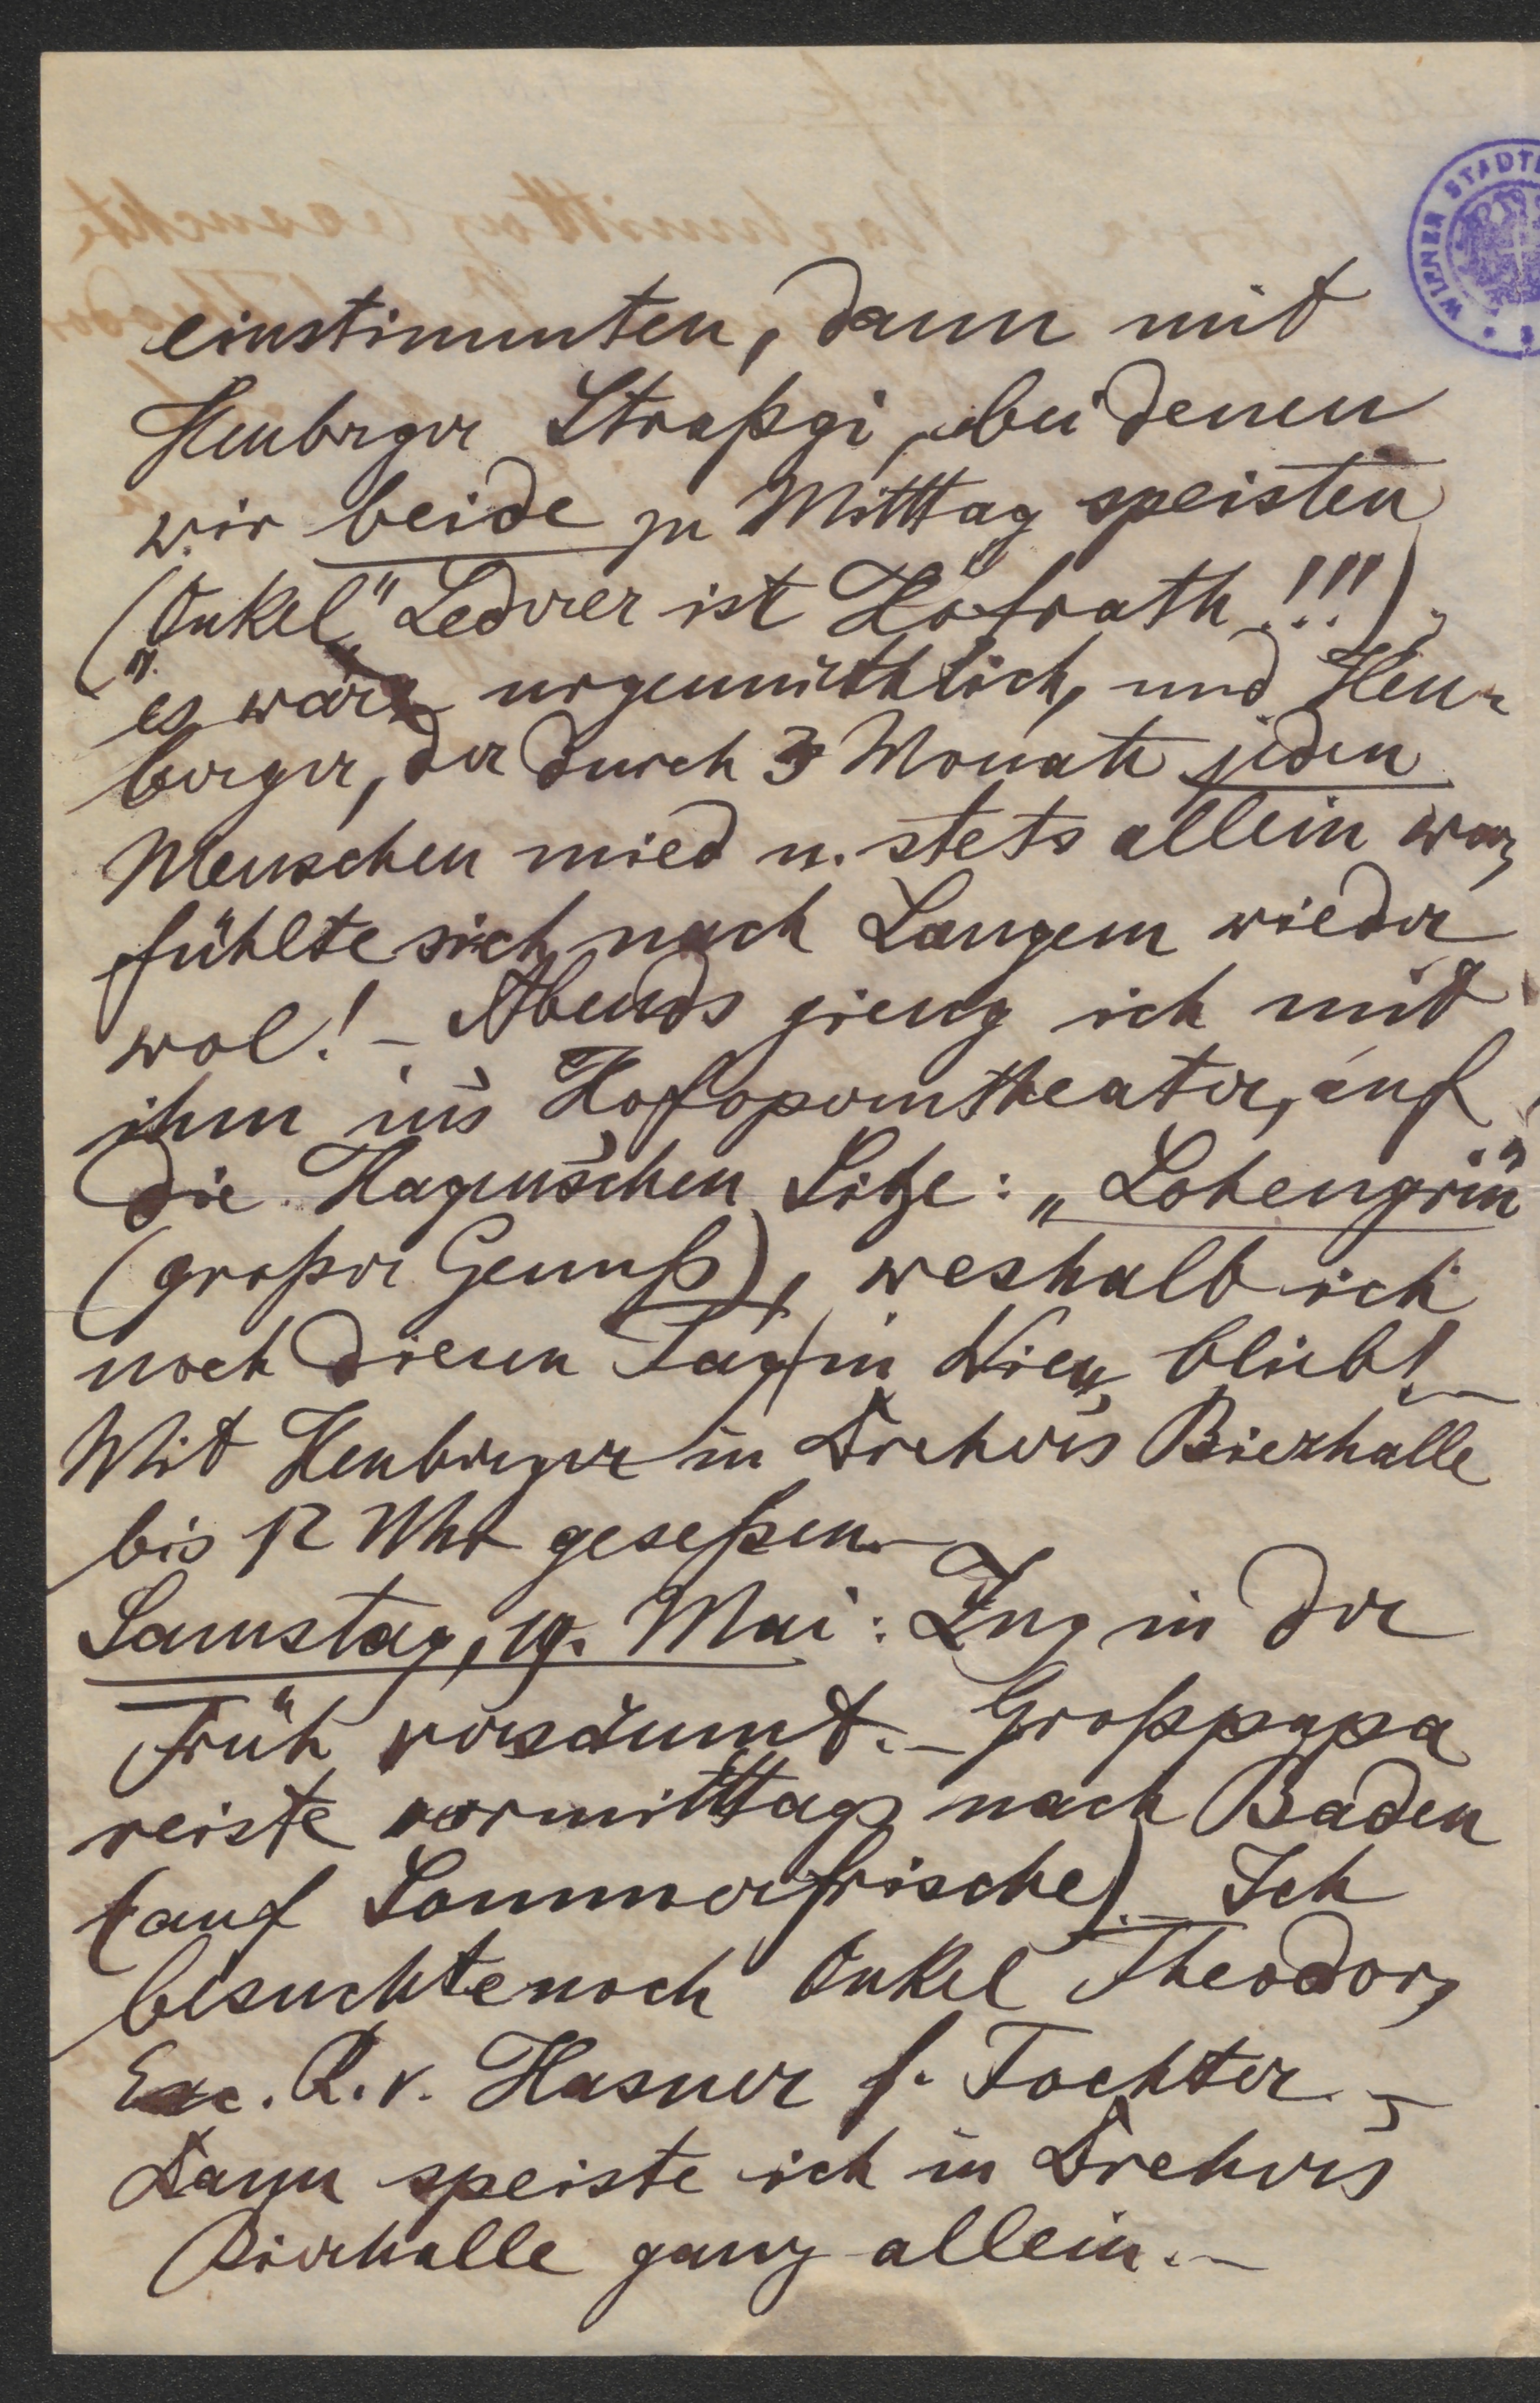 WIENER STADT
einstimmten, dann mit
Heuberger Straßgi, bei denen
wir beide zu Mitttag speisten
(„Onkel“ Lederer ist Hofrath!!!),
es war urgemüthlich, und Heu-
berger, der durch 3 Monate jeden
Menschen mied u. stets allein war,
fühlte sich nach Langem wieder
wol! – Abends gieng ich mit
ihm in's Hofoperntheater, auf
die Hagen'schen Sitze: „Lohengrin“
(großer Genuß), weshalb ich
noch diesen Tag in Wien blieb! –
Mit Heuberger in Dreher's Bierhalle
bis 12 Uhr geseßen. –
Samstag, 19. Mai: Zug in der
Früh versäumt. – Großpapa
reiste vormitttags nach Baden
(auf Sommerfrische). – Ich
besuchte noch Onkel Theodor,
Exc. R. v. Hasner s. Tochter. –
Dann speiste ich in Dreher's
Bierhalle ganz allein. –